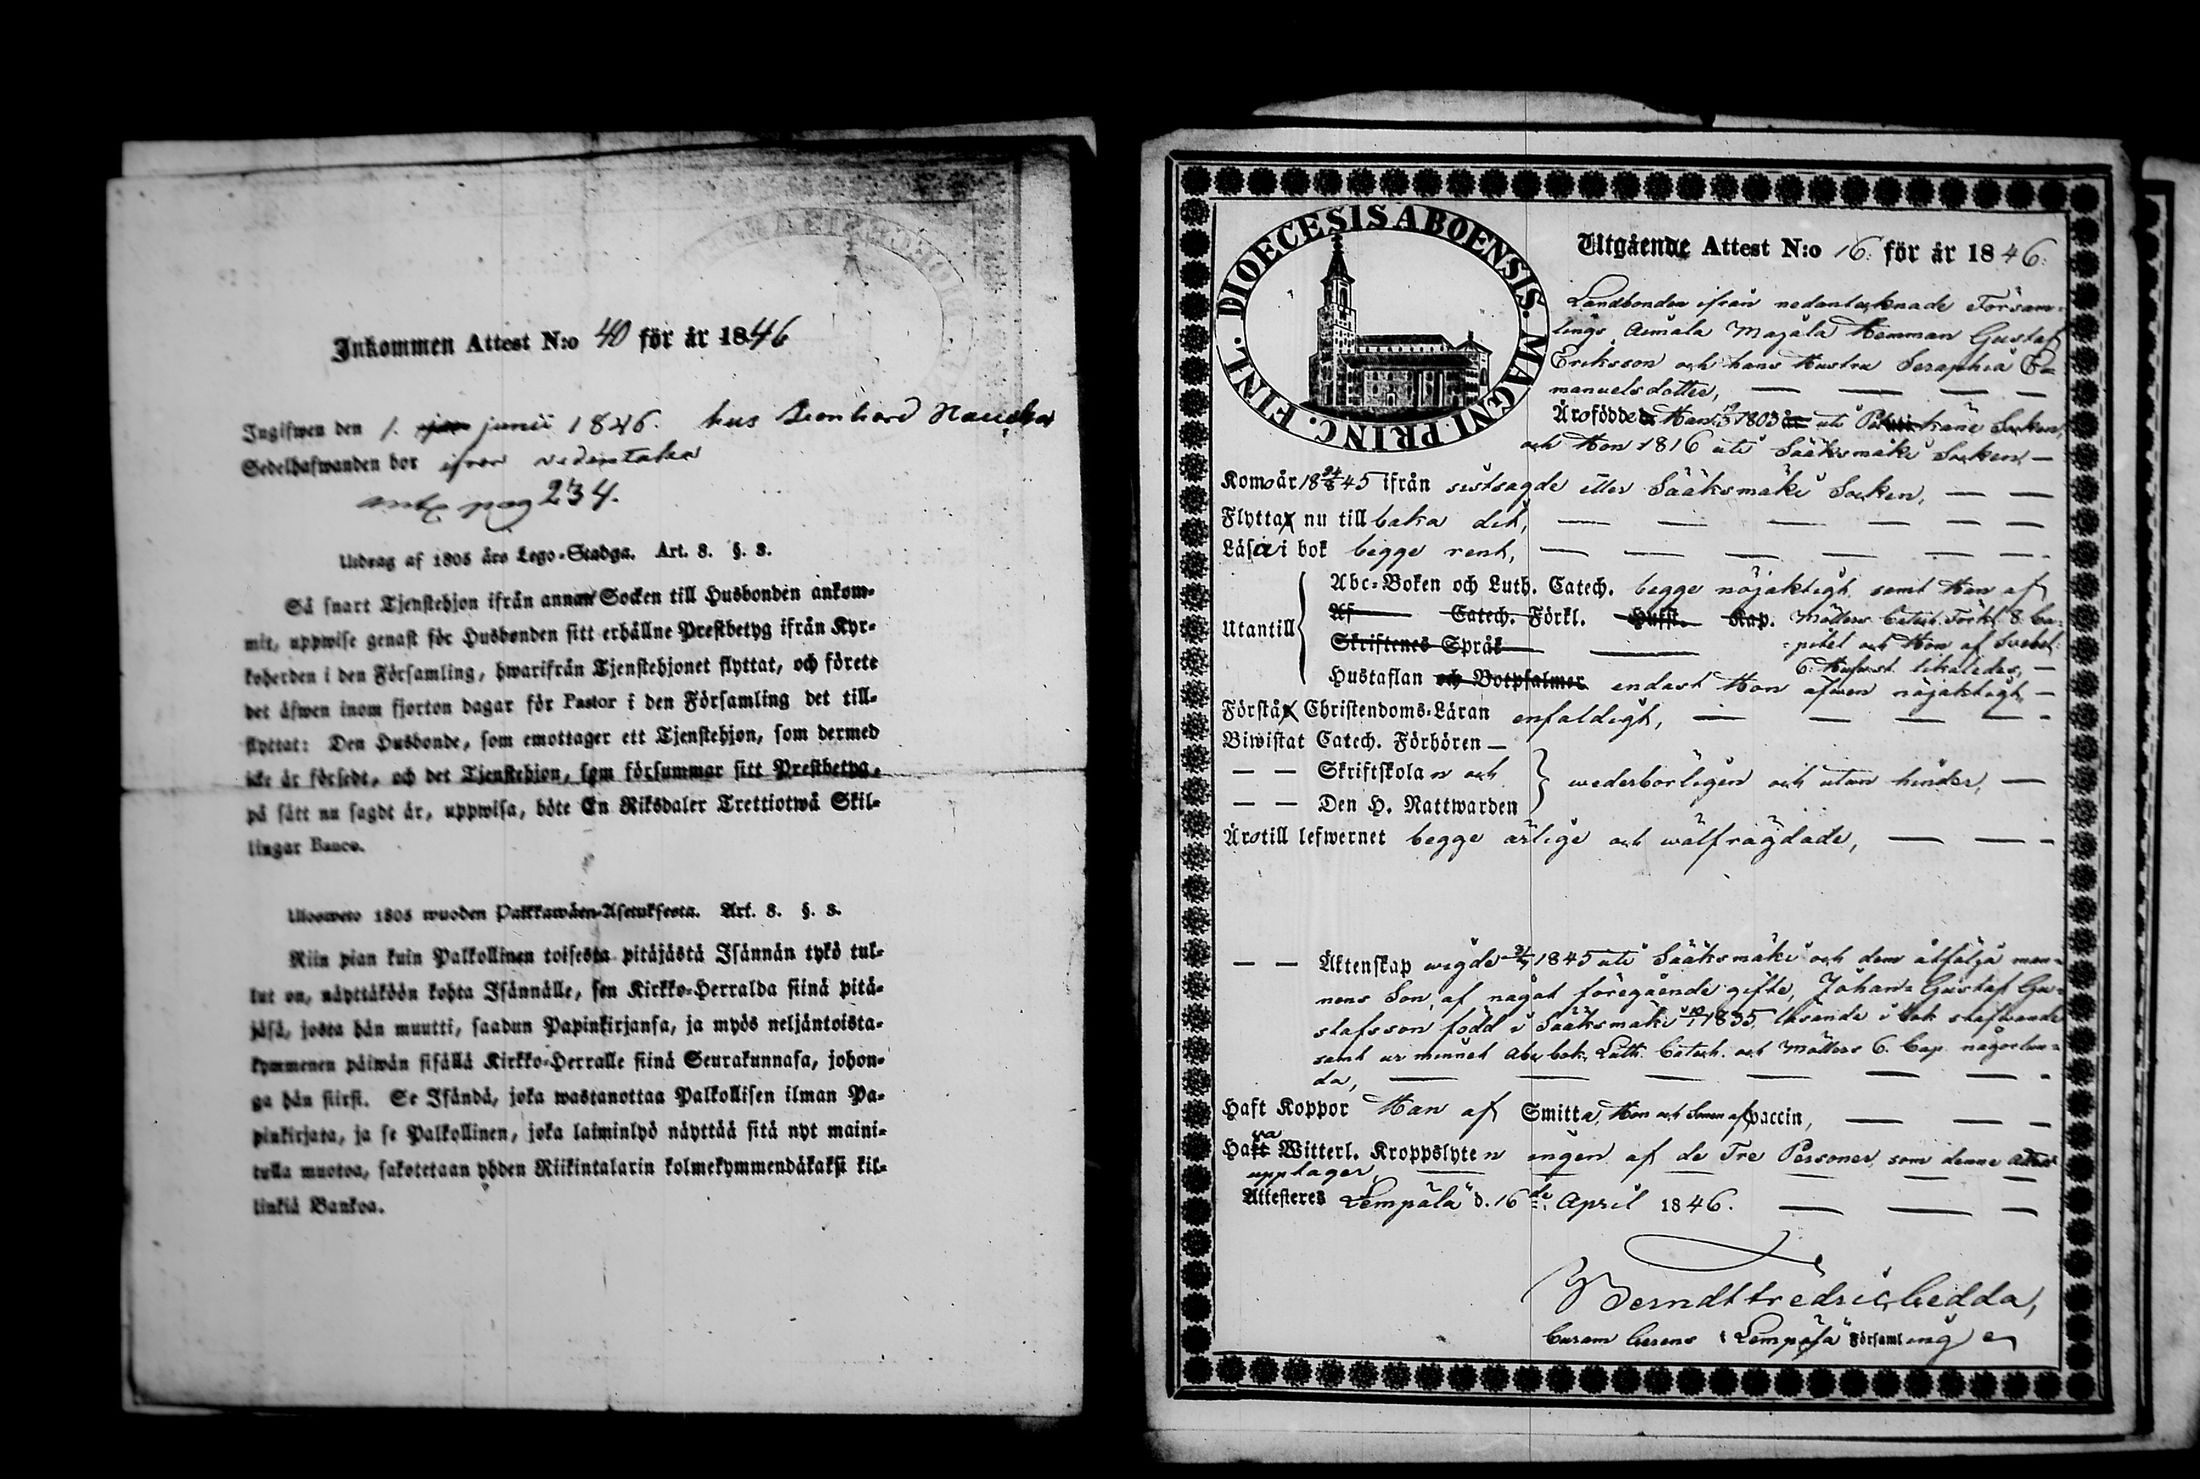 Inkommen Attest N:o 40 för år 1846
Ingifwen den 1. junii 1846. hus
Sedelhafwanden bor ifrån
pag 234.
Utdrag af 1805 års Lego-Stadga. Art. 8. §. 3.
Så snart Tjenstehjon ifrån annan Socken till Husbonden ankom-
mit, uppwise genast för Husbonden sitt erhållne Prestbetyg ifrån Kyr-
koherden i den Församling, hwarifrån Tjenstehjonet flyttat, och förete
det äfwen inom fjorton dagar för Pastor i den Församling det till-
flyttat: Den Husbonde, som emottager ett Tjenstehjon, som dermed
icke är försedt, och det Tjenstehjon, som försummar sitt Prestbetyg,
på sätt nu sagdt är, uppwisa, böte En Riksdaler Trettiotwå Skil-
lingar Banco.
Ulosweto 1805 wuoden Palkkawäen-Asetuksesta. Art. 8. §. 3.
Niin pian kuin Palkollinen toisesta pitäjästä Isännän tykö tul-
lut on, näyttäköön kohta Isännälle, sen Kirkko-Herralda siinä pitä-
jäsä, josta hän muutti, saadun Papinkirjansa, ja myös neljäntoista-
kymmenen päiwän sisällä Kirkko-Herralle siinä Seurakunnasa, johon-
ga hän siirsi. Se Isändä, joka wastanottaa Palkollisen ilman Pa-
pinkirjata, ja se Palkollinen, joka laiminlyö näyttää sitä nyt maini-
tulla muotoa, sakotetaan yhden Riikintalarin kolmekymmendäkaksi kil-
linkiä Bankoa.
DIOECESIS ABOENSIS. MAGNI. PRINC. FINL.
Utgående Attest N:o 16. för år 1846.
Landbonden ifrån nedantecknade Församlings
Aimala Hemman Gustaf
Eriksson och hans Hustru Seraphia E-
manuelsdotter, — — — —
Äro födde Han 1803 uti Socken,
och Hon 1816 uti Sääksmäki Socken, —
Komo år 18 24/8 45 ifrån sistsagde eller Sääksmäki Socken, — —
Flytta nu tillbaka dit, — — — — — —
Läsa i bok begge rent, — — — — — — -
Utantill
Abc-Boken och Luth. Catech. begge nöjaktigt samt Han af
Af Catech. Förkl. Huffst. Kap. Möllers Catech. Förkl. 8. Ca-
Skriftenes Språk -pitel och Hon af Svebel.
6. likaledes, —
Hustaflan och Botpsalmer endast Hon äfwen nöjaktigt, —
Förstå Christendoms-Läran enfaldigt, — — — — -
Biwistat Catech. Förhören —
— — Skriftskolan och wederbörligen och utan hinder, —
— — Den H. Nattwarden
Äro till lefwernet begge ärlige och wälfrägdade, — — -
— — Äktenskap wigde 1845 uti Sääksmäki och dem åtfölja man-
nens Son, af något föregående gifte, Johan Gustaf Gu-
stafsson född i Sääksmäki 1835, läsande i bok stafwande
samt ur minnet Abc bok, Luth. Catech. och Möllers 6. Cap. någorlun-
da, — — — — — — -
Haft Koppor Han af Smitta, Hon och Sonen af vaccin, — — —
Hafva Witterl. Kroppslyten ingen af de Tre Personer, som denne Attest
upptager, — — — — —
Attesteres Lempälä d. 16de April 1846. — — —
Berndt Fredric Cedda,
Curam Gerens i Lempälä Församling